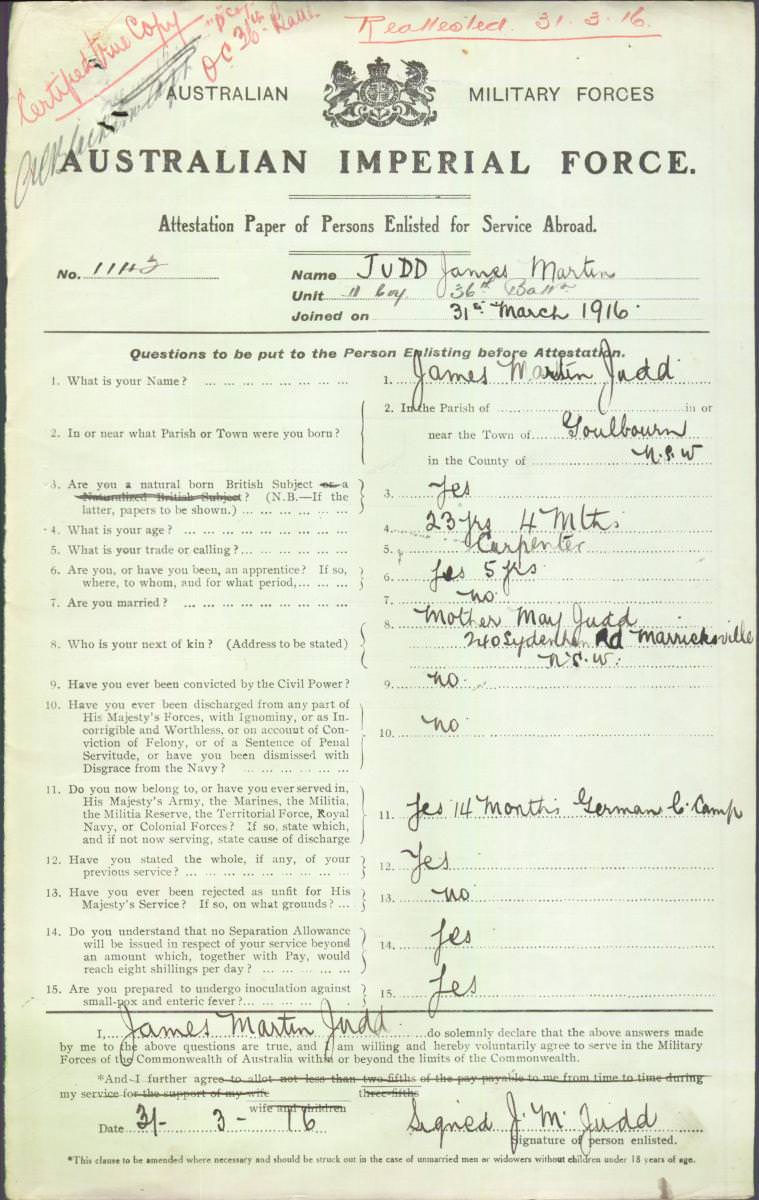 Certified true Copy
OC 36th
Reattested. 31.3.16.
AUSTRALIAN MILITARY FORCES
AUSTRALIAN IMPERIAL FORCE.
Attestation Paper of Persons Enlisted for Service Abroad.
No. 1142 Name JUDD James Martin
Unit Coy 36th Battn
Joined on 31st March 1916.
Questions to be put to the Person Enlisting before Attestation.
1. What is your Name? ... 1. James Martin Judd
2. In or near what Parish or Town were you born? 2. In the Parish of ... in or
near the Town of Goulbourn
in the County of N.S.W
3. Are you a natural born British Subject or a
Naturalized British Subject? (N.B.—If the
latter, papers to be shown.) ... 3. Yes
4. What is your age? ... 4. 23 yrs 4 Mths
5. What is your trade or calling? ... 5. Carpenter
6. Are you, or have you been, an apprentice? If so,
where, to whom, and for what period, ... 6. Yes 5 yrs
7. Are you married? ... 7. no
8. Who is your next of kin? (Address to be stated) 8. Mother May Judd
240 Sydenham Rd Marricksville
N.S.W.
9. Have you ever been convicted by the Civil Power? 9. no
10. Have you ever been discharged from any part of
His Majesty's Forces, with Ignominy, or as In-
corrigible and Worthless, or on account of Con-
viction of Felony, or of a Sentence of Penal
Servitude, or have you been dismissed with
Disgrace from the Navy? ... 10. no
11. Do you now belong to, or have you ever served in,
His Majesty's Army, the Marines, the Militia,
the Militia Reserve, the Territorial Force, Royal
Navy, or Colonial Forces? If so, state which,
and if not now serving, state cause of discharge 11. Yes 14 Months German C. Camp
12. Have you stated the whole, if any, of your
previous service? ... 12. Yes
13. Have you ever been rejected as unfit for His
Majesty's Service? If so, on what grounds? ... 13. no
14. Do you understand that no Separation Allowance
will be issued in respect of your service beyond
an amount which, together with Pay, would
reach eight shillings per day? ... 14. Yes
15. Are you prepared to undergo inoculation against
small-pox and enteric fever? ... 15. Yes
I, James Martin Judd do solemnly declare that the above answers made
by me to the above questions are true, and I am willing and hereby voluntarily agree to serve in the Military
Forces of the Commonwealth of Australia within or beyond the limits of the Commonwealth.
*And I further agree to allot not less than two-fifths of the pay payable to me from time to time during
my service for the support of my wife three-fifths
wife and children
Date 31- 3- 16 Signed J. M. Judd
Signature of person enlisted.
*This clause to be amended where necessary and should be struck out in the case of unmarried men or widowers without children under 18 years of age.